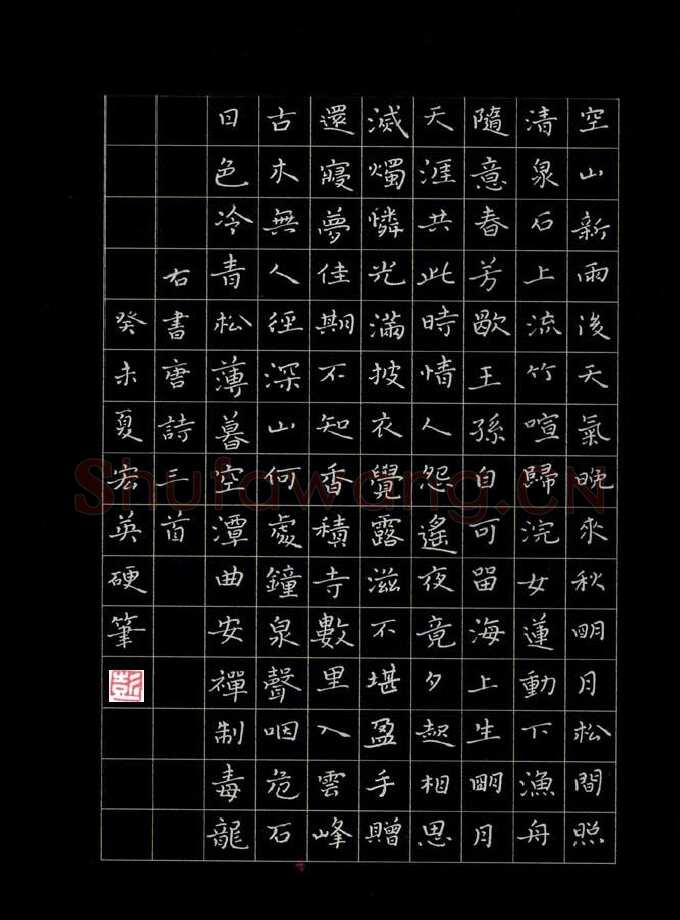 空山新雨後天氣晚來秋明月松間照
清泉石上流竹喧歸浣女蓮動下漁舟
隨意春芳歇王孫自可留海上生明月
天涯共此時情人怨遙夜竟夕起相思
滅燭憐光滿披衣覺露滋不堪盈手贈
還寢夢佳期不知香積寺數里入雲峰
古木無人徑深山何處鐘泉聲咽危石
日色冷青松薄暮空潭曲安禪制毒龍
右書唐詩三首
癸未夏宏英硬筆
彭
Shufawang.CN